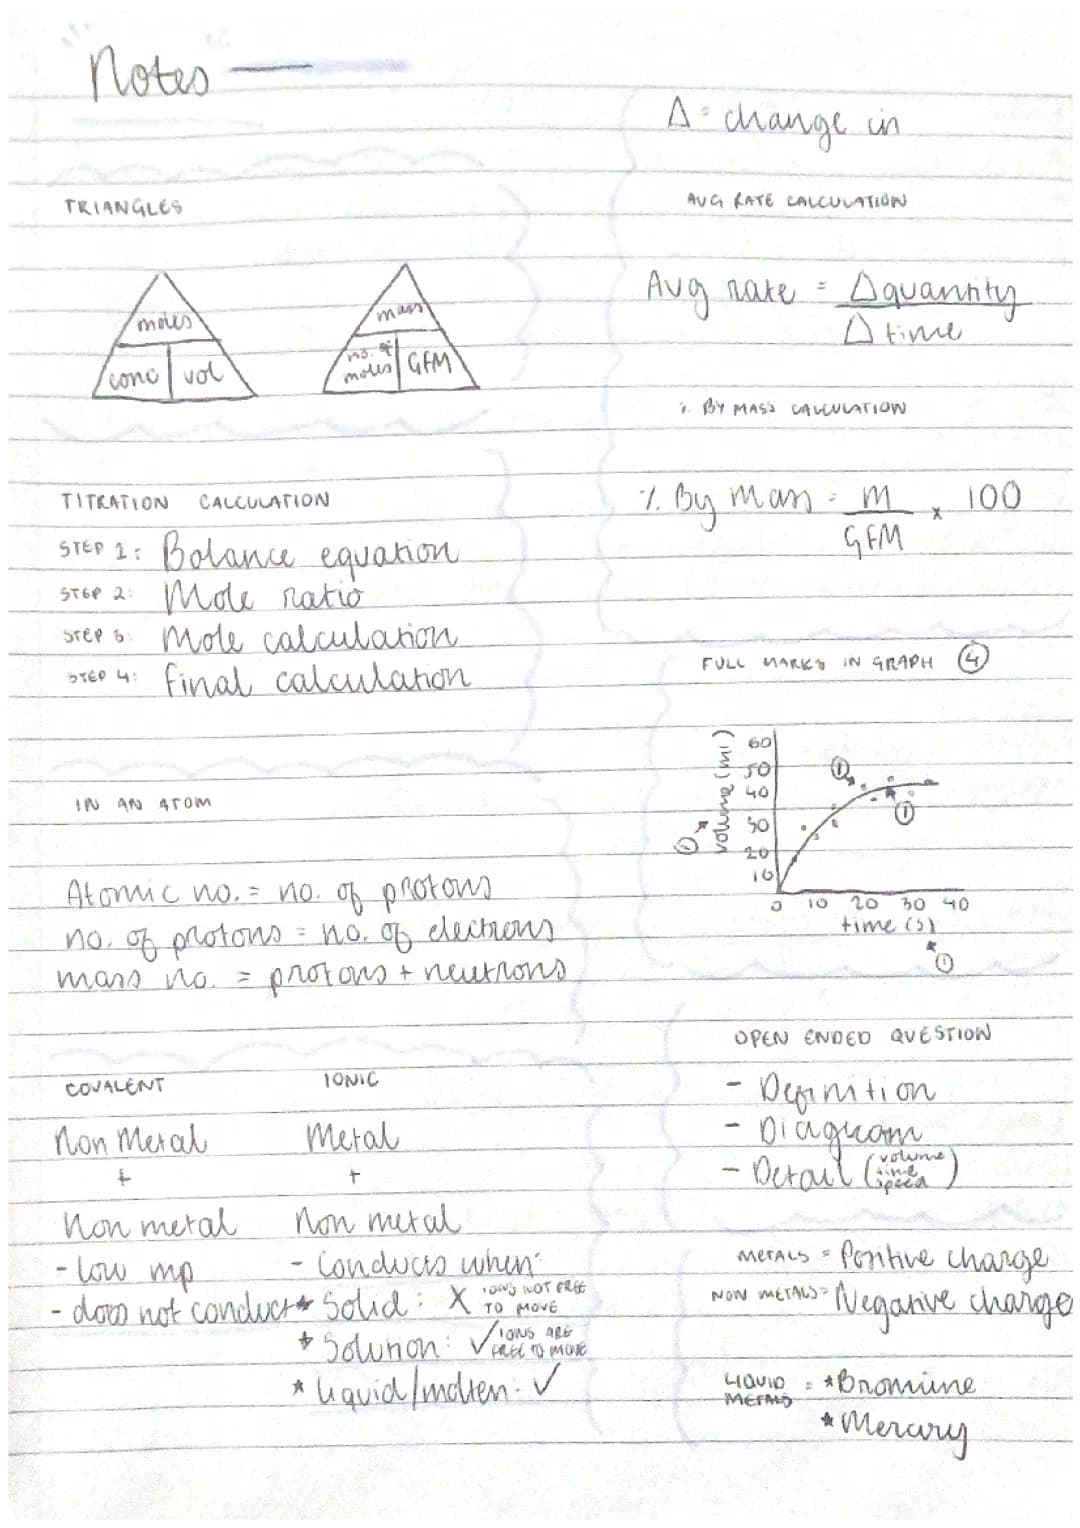 Notes
TRIANGLES
moles
conc vol
mass
no. of moles GFM
TITRATION CALCULATION
STEP 1: Balance equation
STEP 2: Mole ratio
STEP 3: Mole calculation
STEP 4: final calculation
IN AN ATOM
Atomic no. = no. of protons
no. of protons = no. of electrons
mass no. = protons + neutrons
COVALENT
Non Metal
+
Non metal
- low mp
- does not conduct
IONIC
Metal
+
Non metal
- Conducts when:
* Solid: X IONS NOT FREE TO MOVE
* Solution: ✓ IONS ARE FREE TO MOVE
* liquid/molten: ✓
Δ = change in
AVG RATE CALCULATION
Avg rate = Δquantity
Δ time
% BY MASS CALCULATION
% By mass = m x 100
GFM
FULL MARKS IN GRAPH ④
volume (ml)
60
50
40
30
20
10
0 10 20 30 40
time (s)
①
①
①
①
OPEN ENDED QUESTION
- Definition
- Diagram
- Detail (volume time speed)
METALS = Positive charge
NON METALS = Negative charge
LIQUID METALS = *Bromine
*Mercury